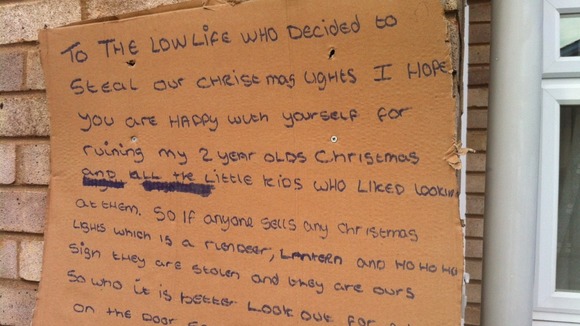 TO THE LOWLIFE WHO DECIDED to
STEAL OUR CHRISTMAS LIGHTS I HOPE
YOU ARE HAPPY WITH YOURSELF FOR
RUINING MY 2 YEAR OLDS CHRISTMAS
and all the LITTLE KIDS WHO LIKED LOOKIN
AT THEM. SO IF ANYONE SELLS ANY CHRISTMAS
LIGHTS WHICH IS A RIENDEER, LANTERN AND HO HO HO
SIGN THEY ARE STOLEN AND THEY ARE OURS
SO WHO IT IS BETTER LOOK OUT FOR A
ON THE DOOR